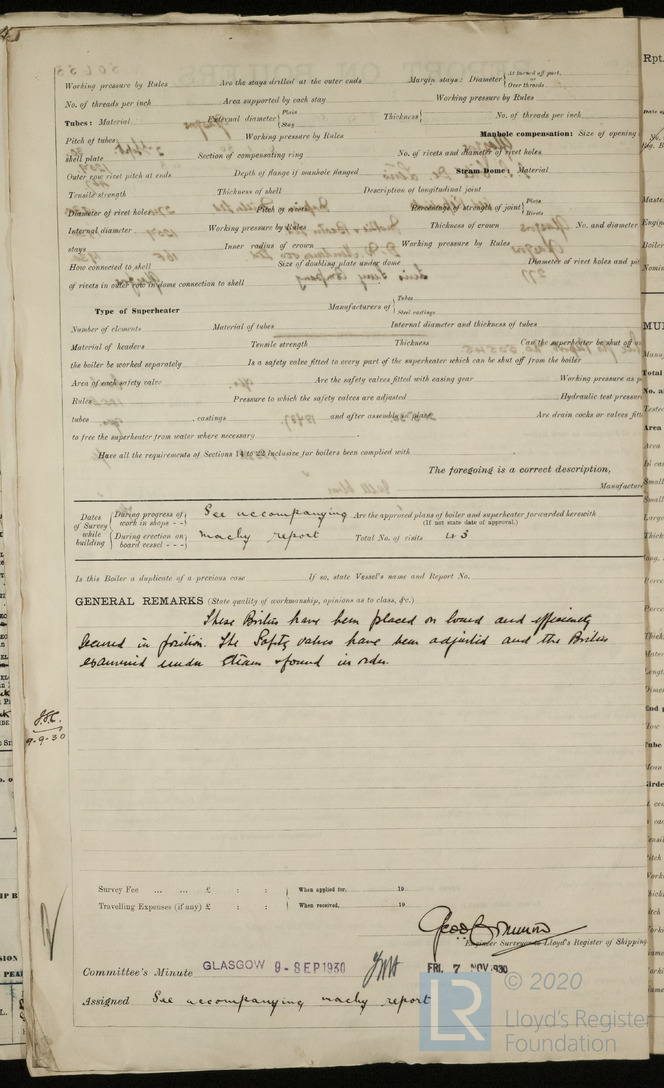 Working pressure by Rules Are the stays drilled at the outer ends Margin stays: Diameter { At turned off part, or Over threads
No. of threads per inch Area supported by each stay Working pressure by Rules
Tubes: Material External diameter { Plain Stay Thickness { No. of threads per inch
Pitch of tubes Working pressure by Rules Manhole compensation: Size of opening
shell plate Section of compensating ring No. of rivets and diameter of rivet holes
Outer row rivet pitch at ends Depth of flange if manhole flanged Steam Dome: Material
Tensile strength Thickness of shell Description of longitudinal joint
Diameter of rivet holes Pitch of rivets Percentage of strength of joint { Plate Rivets
Internal diameter Working pressure by Rules Thickness of crown No. and diameter
stays Inner radius of crown Working pressure by Rules
How connected to shell Size of doubling plate under dome Diameter of rivet holes and pit
of rivets in outer row in dome connection to shell
Type of Superheater Manufacturers of { Tubes Steel castings
Number of elements Material of tubes Internal diameter and thickness of tubes
Material of headers Tensile strength Thickness Can the superheater be shut off
the boiler be worked separately Is a safety valve fitted to every part of the superheater which can be shut off from the boiler
Area of each safety valve Are the safety valves fitted with easing gear Working pressure as p
Rules Pressure to which the safety valves are adjusted Hydraulic test pressure
tubes , castings and after assembly in place Are drain cocks or valves fitt
to free the superheater from water where necessary
Have all the requirements of Sections 14 to 22 inclusive for boilers been complied with
The foregoing is a correct description,
Manufacture
Dates of Survey while building { During progress of work in shops - - } See accompanying Are the approved plans of boiler and superheater forwarded herewith
(If not state date of approval.)
{ During erection on board vessel - - - } machy report Total No. of visits
Is this Boiler a duplicate of a previous case If so, state Vessel's name and Report No.
GENERAL REMARKS (State quality of workmanship, opinions as to class, &c.)
These Boilers have been placed on board and efficiently
secured in position. The Safety valves have been adjusted and the Boilers
examined under steam & found in order.
9-9-30
Survey Fee ... ... £ : : When applied for, 19
Travelling Expenses (if any) £ : : When received, 19
Engineer Surveyor to Lloyd's Register of Shipping
Committee's Minute GLASGOW 9-SEP1930 FRI. 7 NOV 1930
Assigned See accompanying machy report
© 2020
LR Lloyd's Register
Foundation